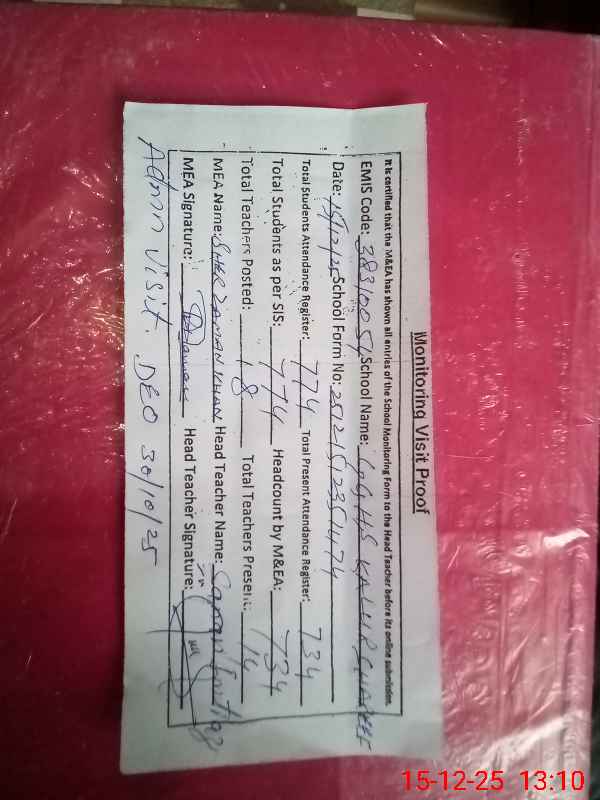 Monitoring Visit Proof
It is certified that the M&EA has shown all entries of the School Monitoring Form to the Head Teacher before its online submission.
EMIS Code: 38310051 School Name: GGHS KALUR SHAREEF
Date: 15/12/25 School Form No: 25121512351474
Total Students Attendance Register: 774 Total Present Attendance Register: 734
Total Students as per SIS: 774 Headcount by M&EA: 734
Total Teachers Posted: 18 Total Teachers Present: 14
MEA Name: SHER ZAMAN KHAN Head Teacher Name:
MEA Signature: Head Teacher Signature:
Admn Visit. DEO 30/10/25
15-12-25 13:10